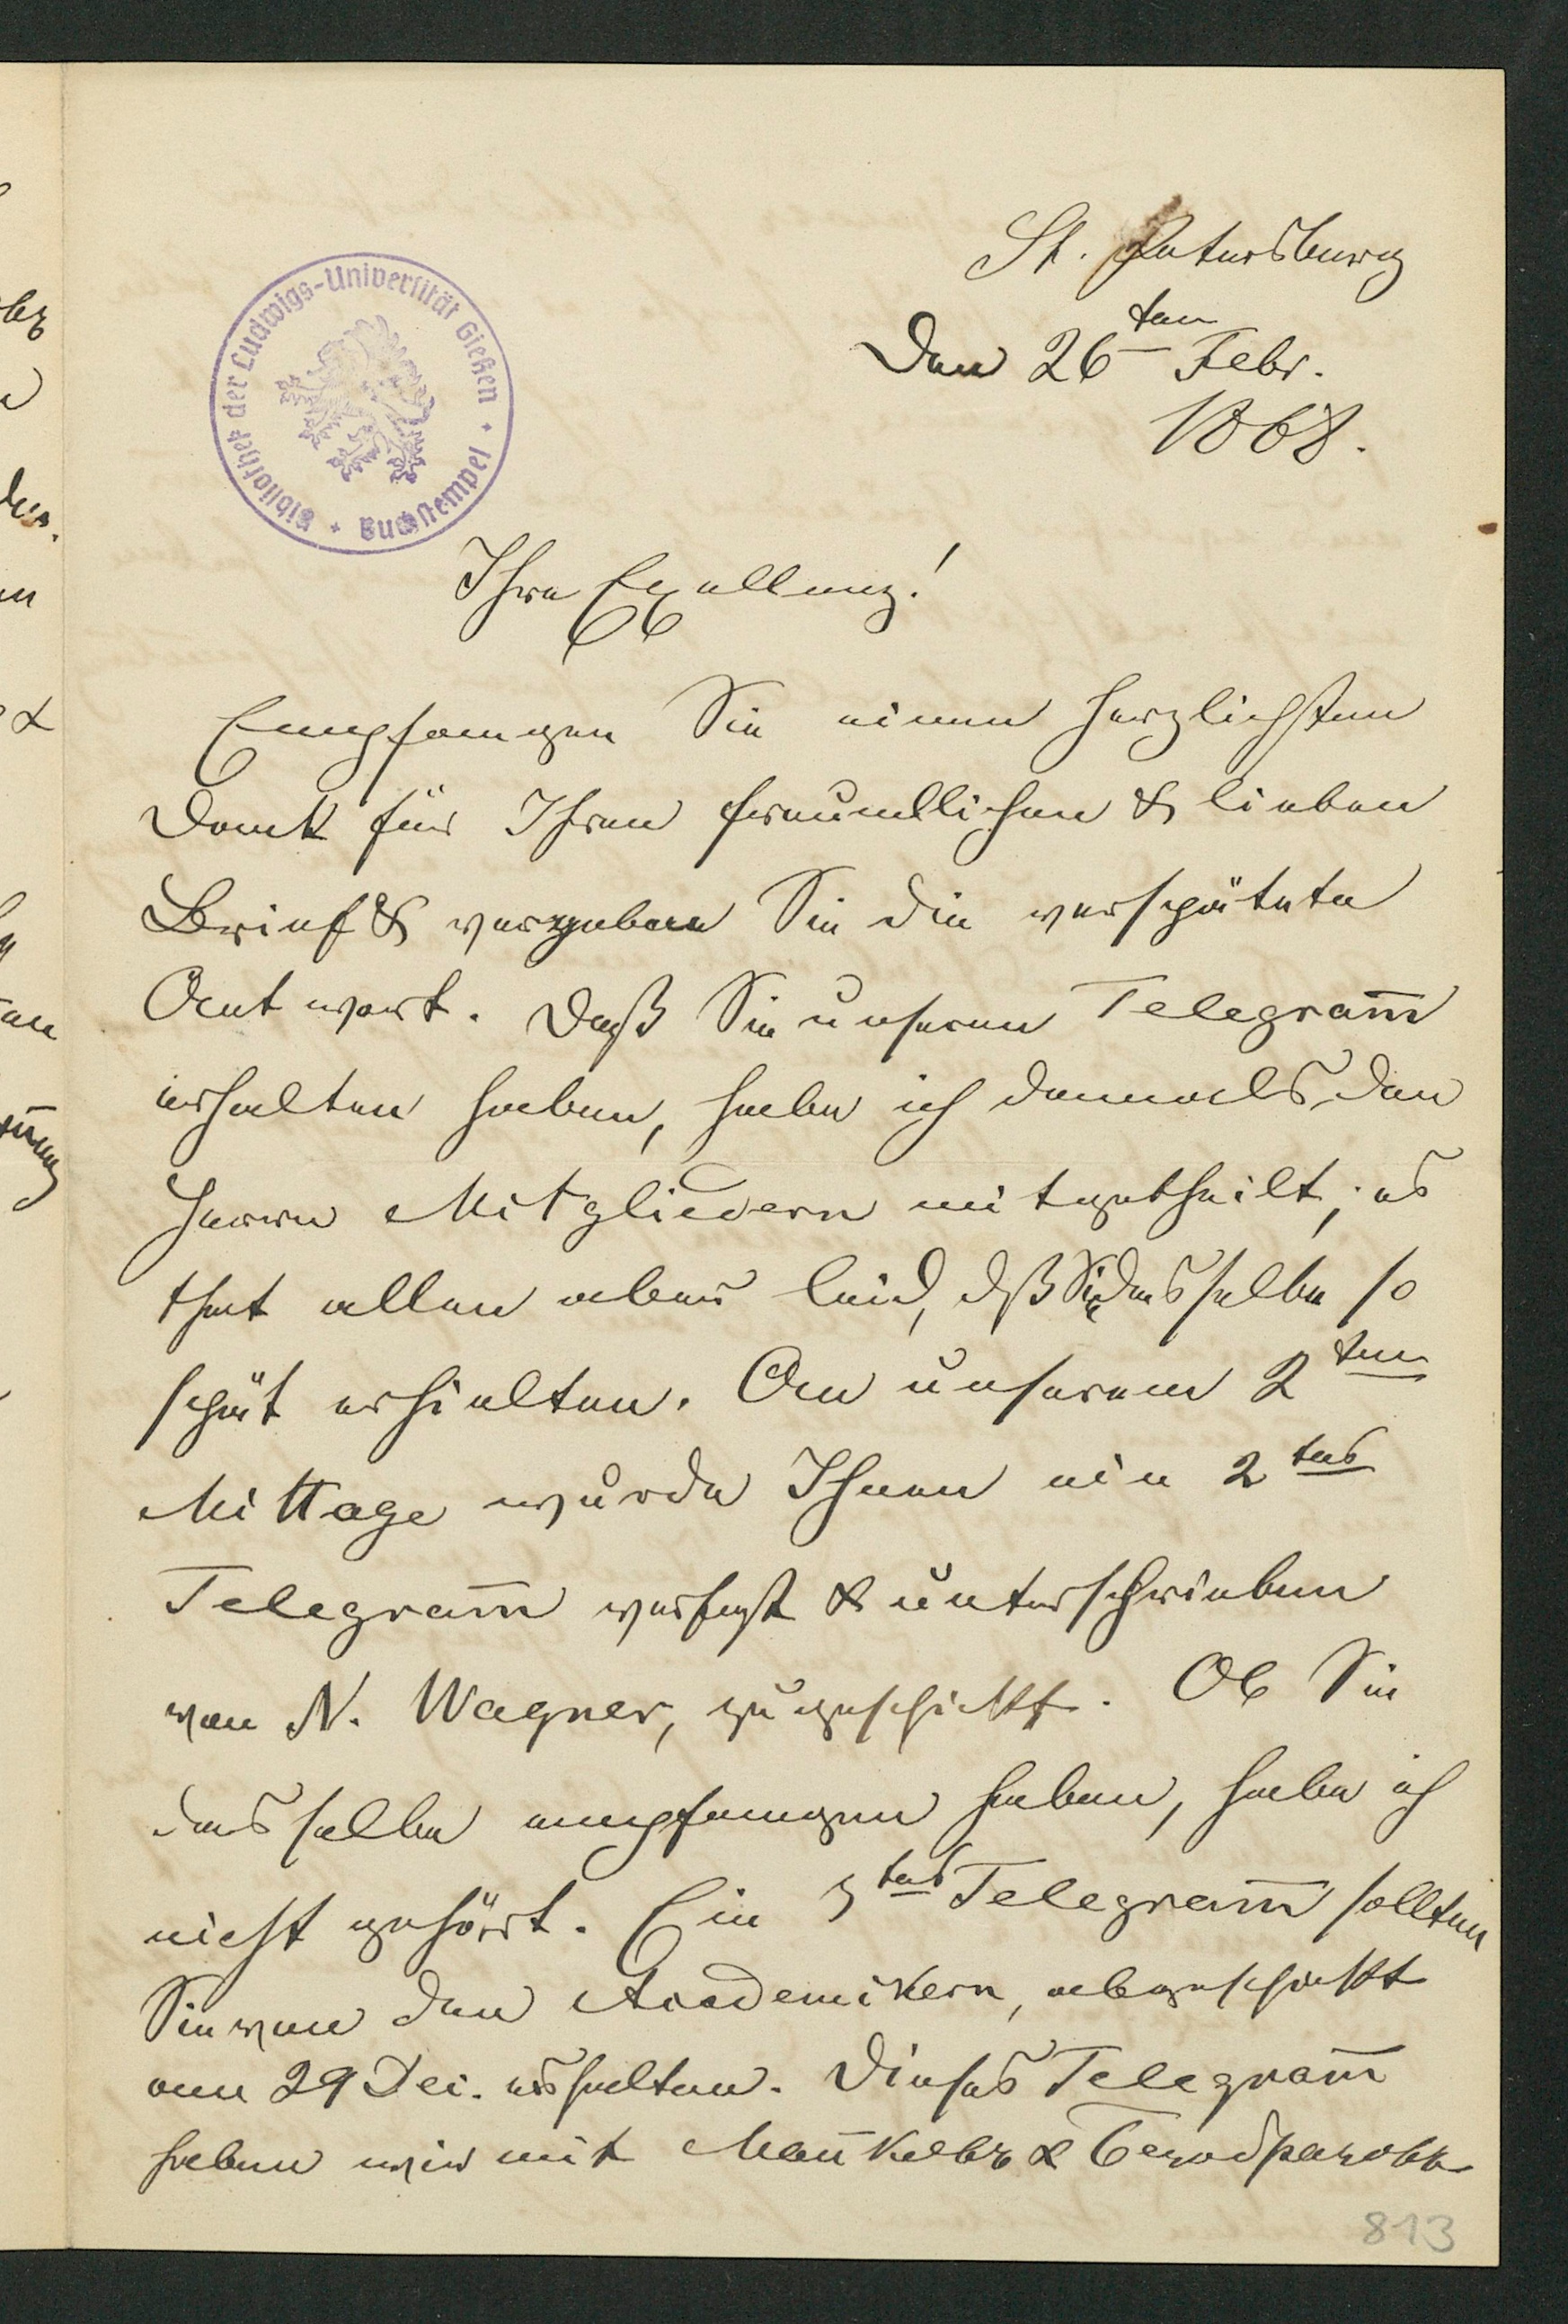 St. Petersburg
Den 26ten Febr.
1868.
Bibliothek der Ludwigs-Universität Gießen + Buchstempel +
Ihre Exellenz!
Empfangen Sie einen herzlichsten
Dank für Ihren freundlichen & lieben
Brief & vergeben Sie die verspätete
Antwort. Daß Sie unseren Telegram̄
erhalten haben, habe ich damals den
Herrn Mitgliedern mitgetheilt; es
that allen aber leid, dß Sie dasselbe so
spät erhielten. An unserem 2ten
Mittage wurde Ihnen ein 2tes
Telegram̄ verfaßt & unterschrieben
von N. Wagner, zugeschickt. Ob Sie
dasselbe empfangen haben, habe ich
nicht gehört. Ein 3tes Telegram̄ sollten
Sie von den Academikern, abgeschickt
am 29 Dec. erhalten. Dieses Telegram̄
haben wir mit &  Безобразовъ
813